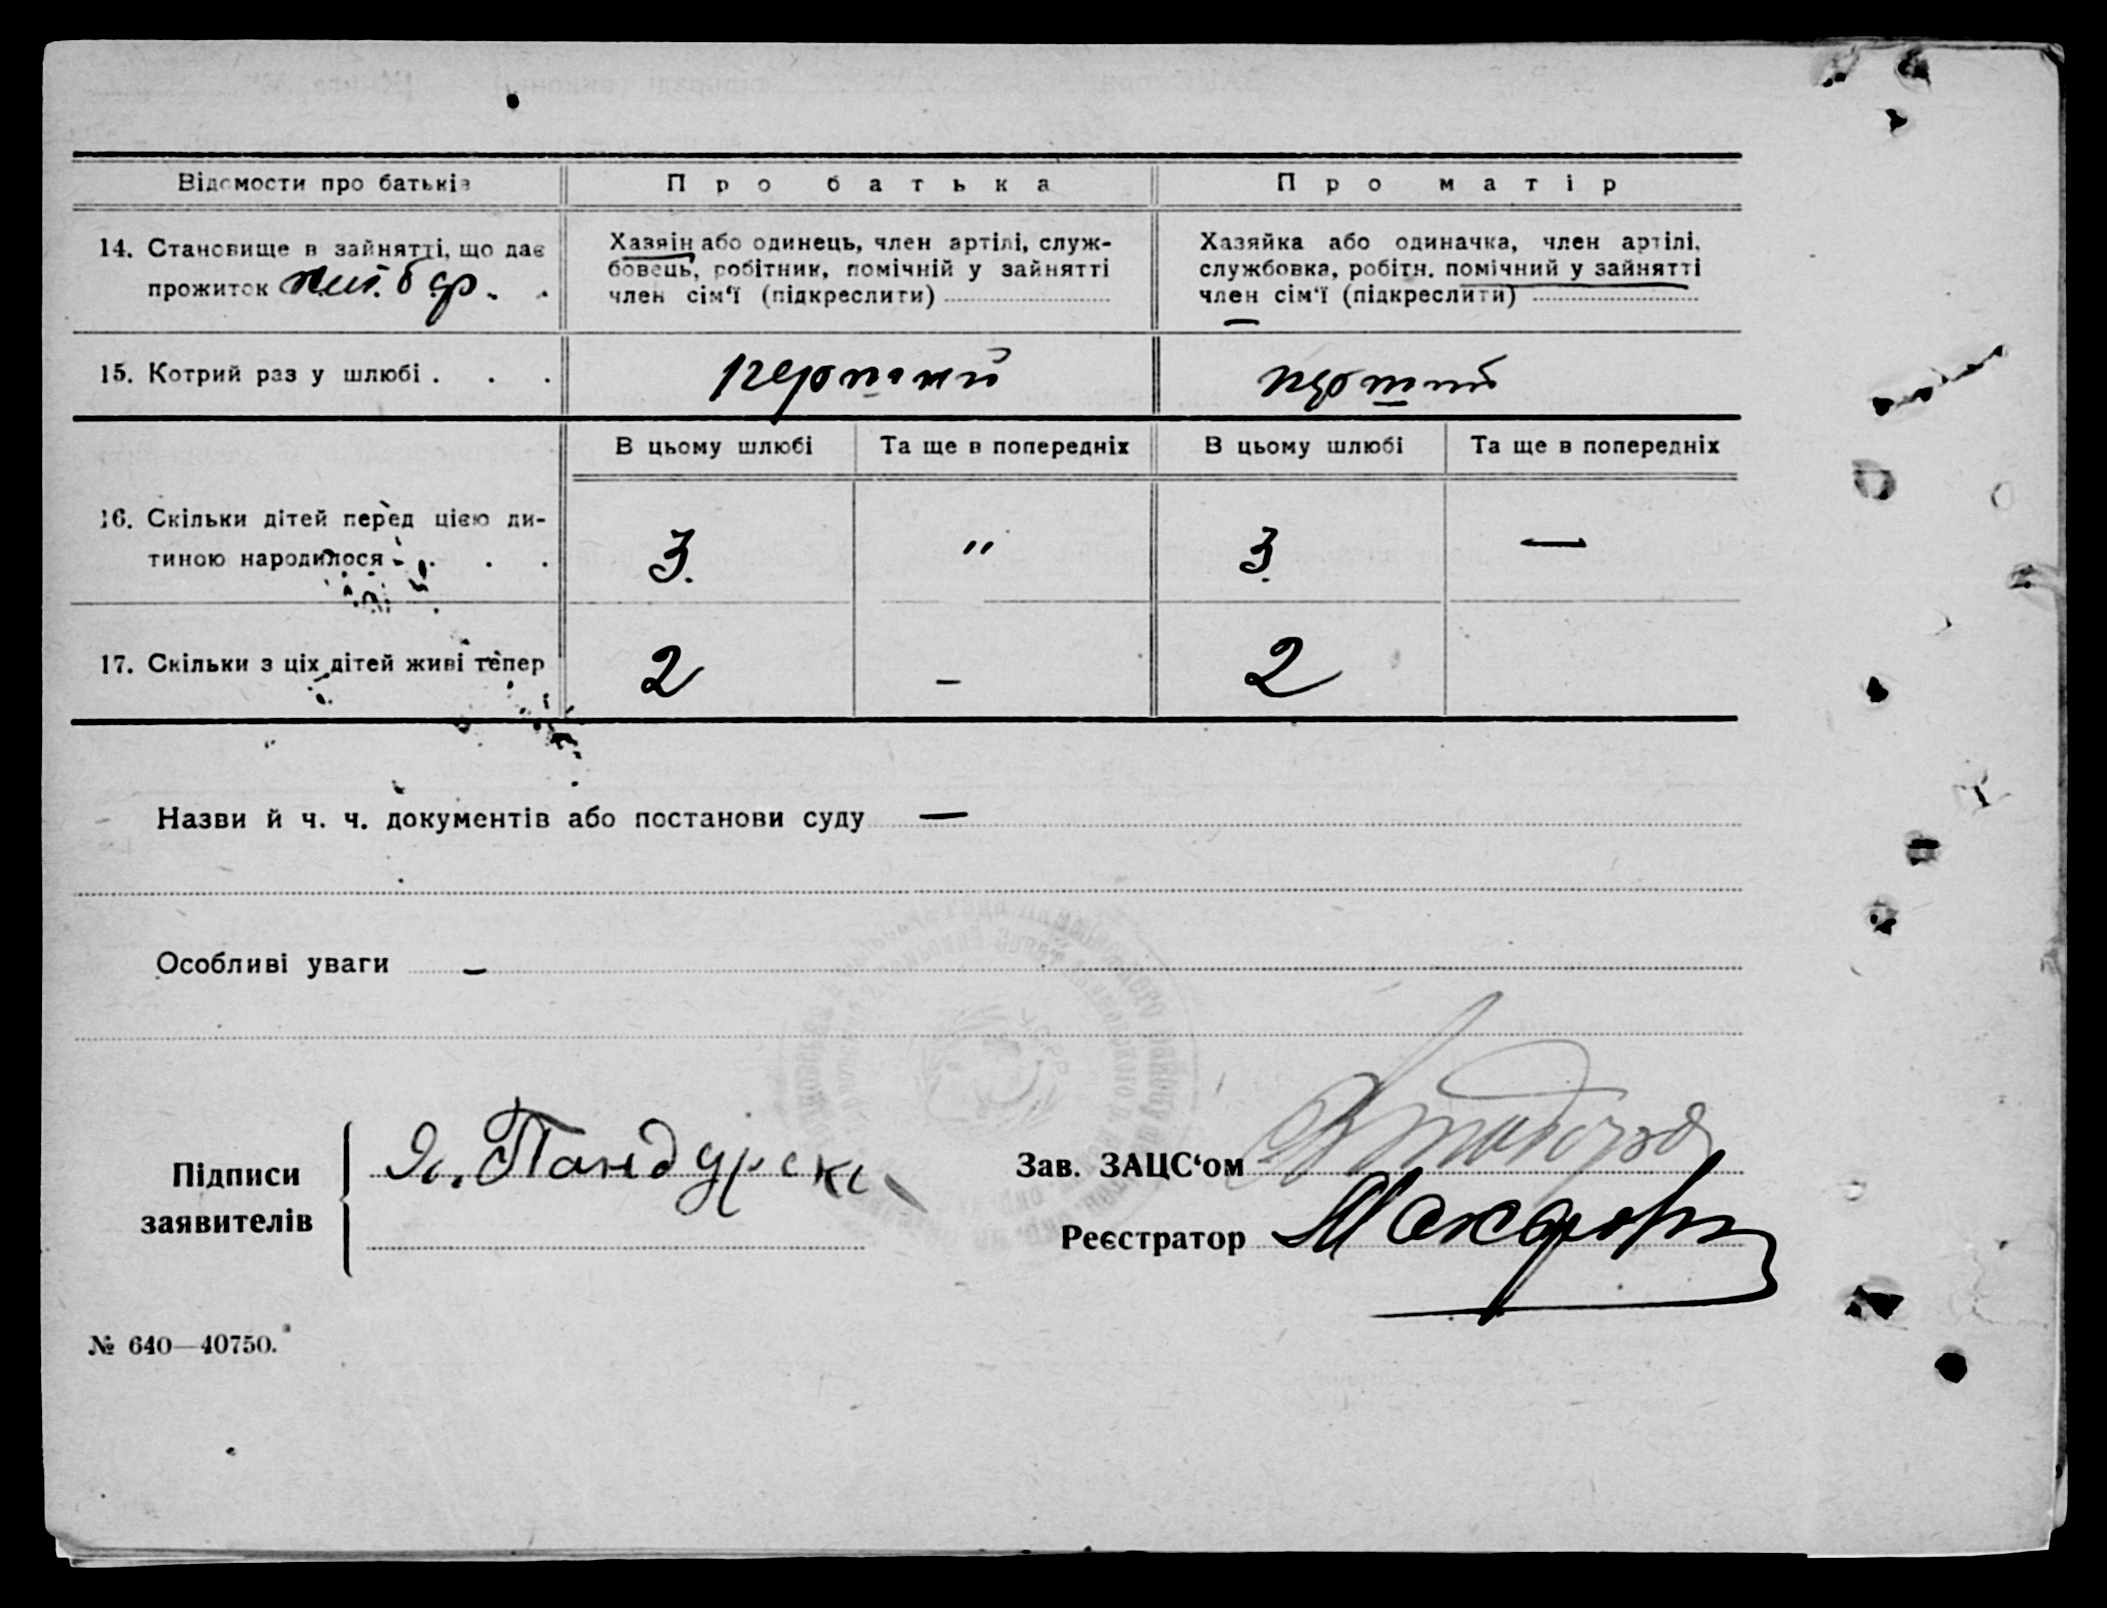 Відомости про батьків
Про батька
Про матір
14. Становище в зайнятті, що дає
прожиток
Хазяїн або одинець, член артілі, служ-
бовець, робітник, помічній у зайнятті
член сім‘ї (підкреслити)
Хазяйка або одиначка, член артілі,
службовка, робітн. помічний у зайнятті
член сім‘ї (підкреслити)
15. Котрий раз у шлюбі . . .
перший
перший
В цьому шлюбі
Та ще в попередніх
В цьому шлюбі
Та ще в попередніх
16. Скільки дітей перед цією ди-
тиною народилося
3.
"
3.
—
17. Скільки з ціх дітей живі тепер
2
-
2
Назви й ч. ч. документів або постанови суду —
Особливі уваги —
Підписи
заявителів
Я. Пандурскі
Зав. ЗАЦС‘ом
Реєстратор
№ 640—40750.